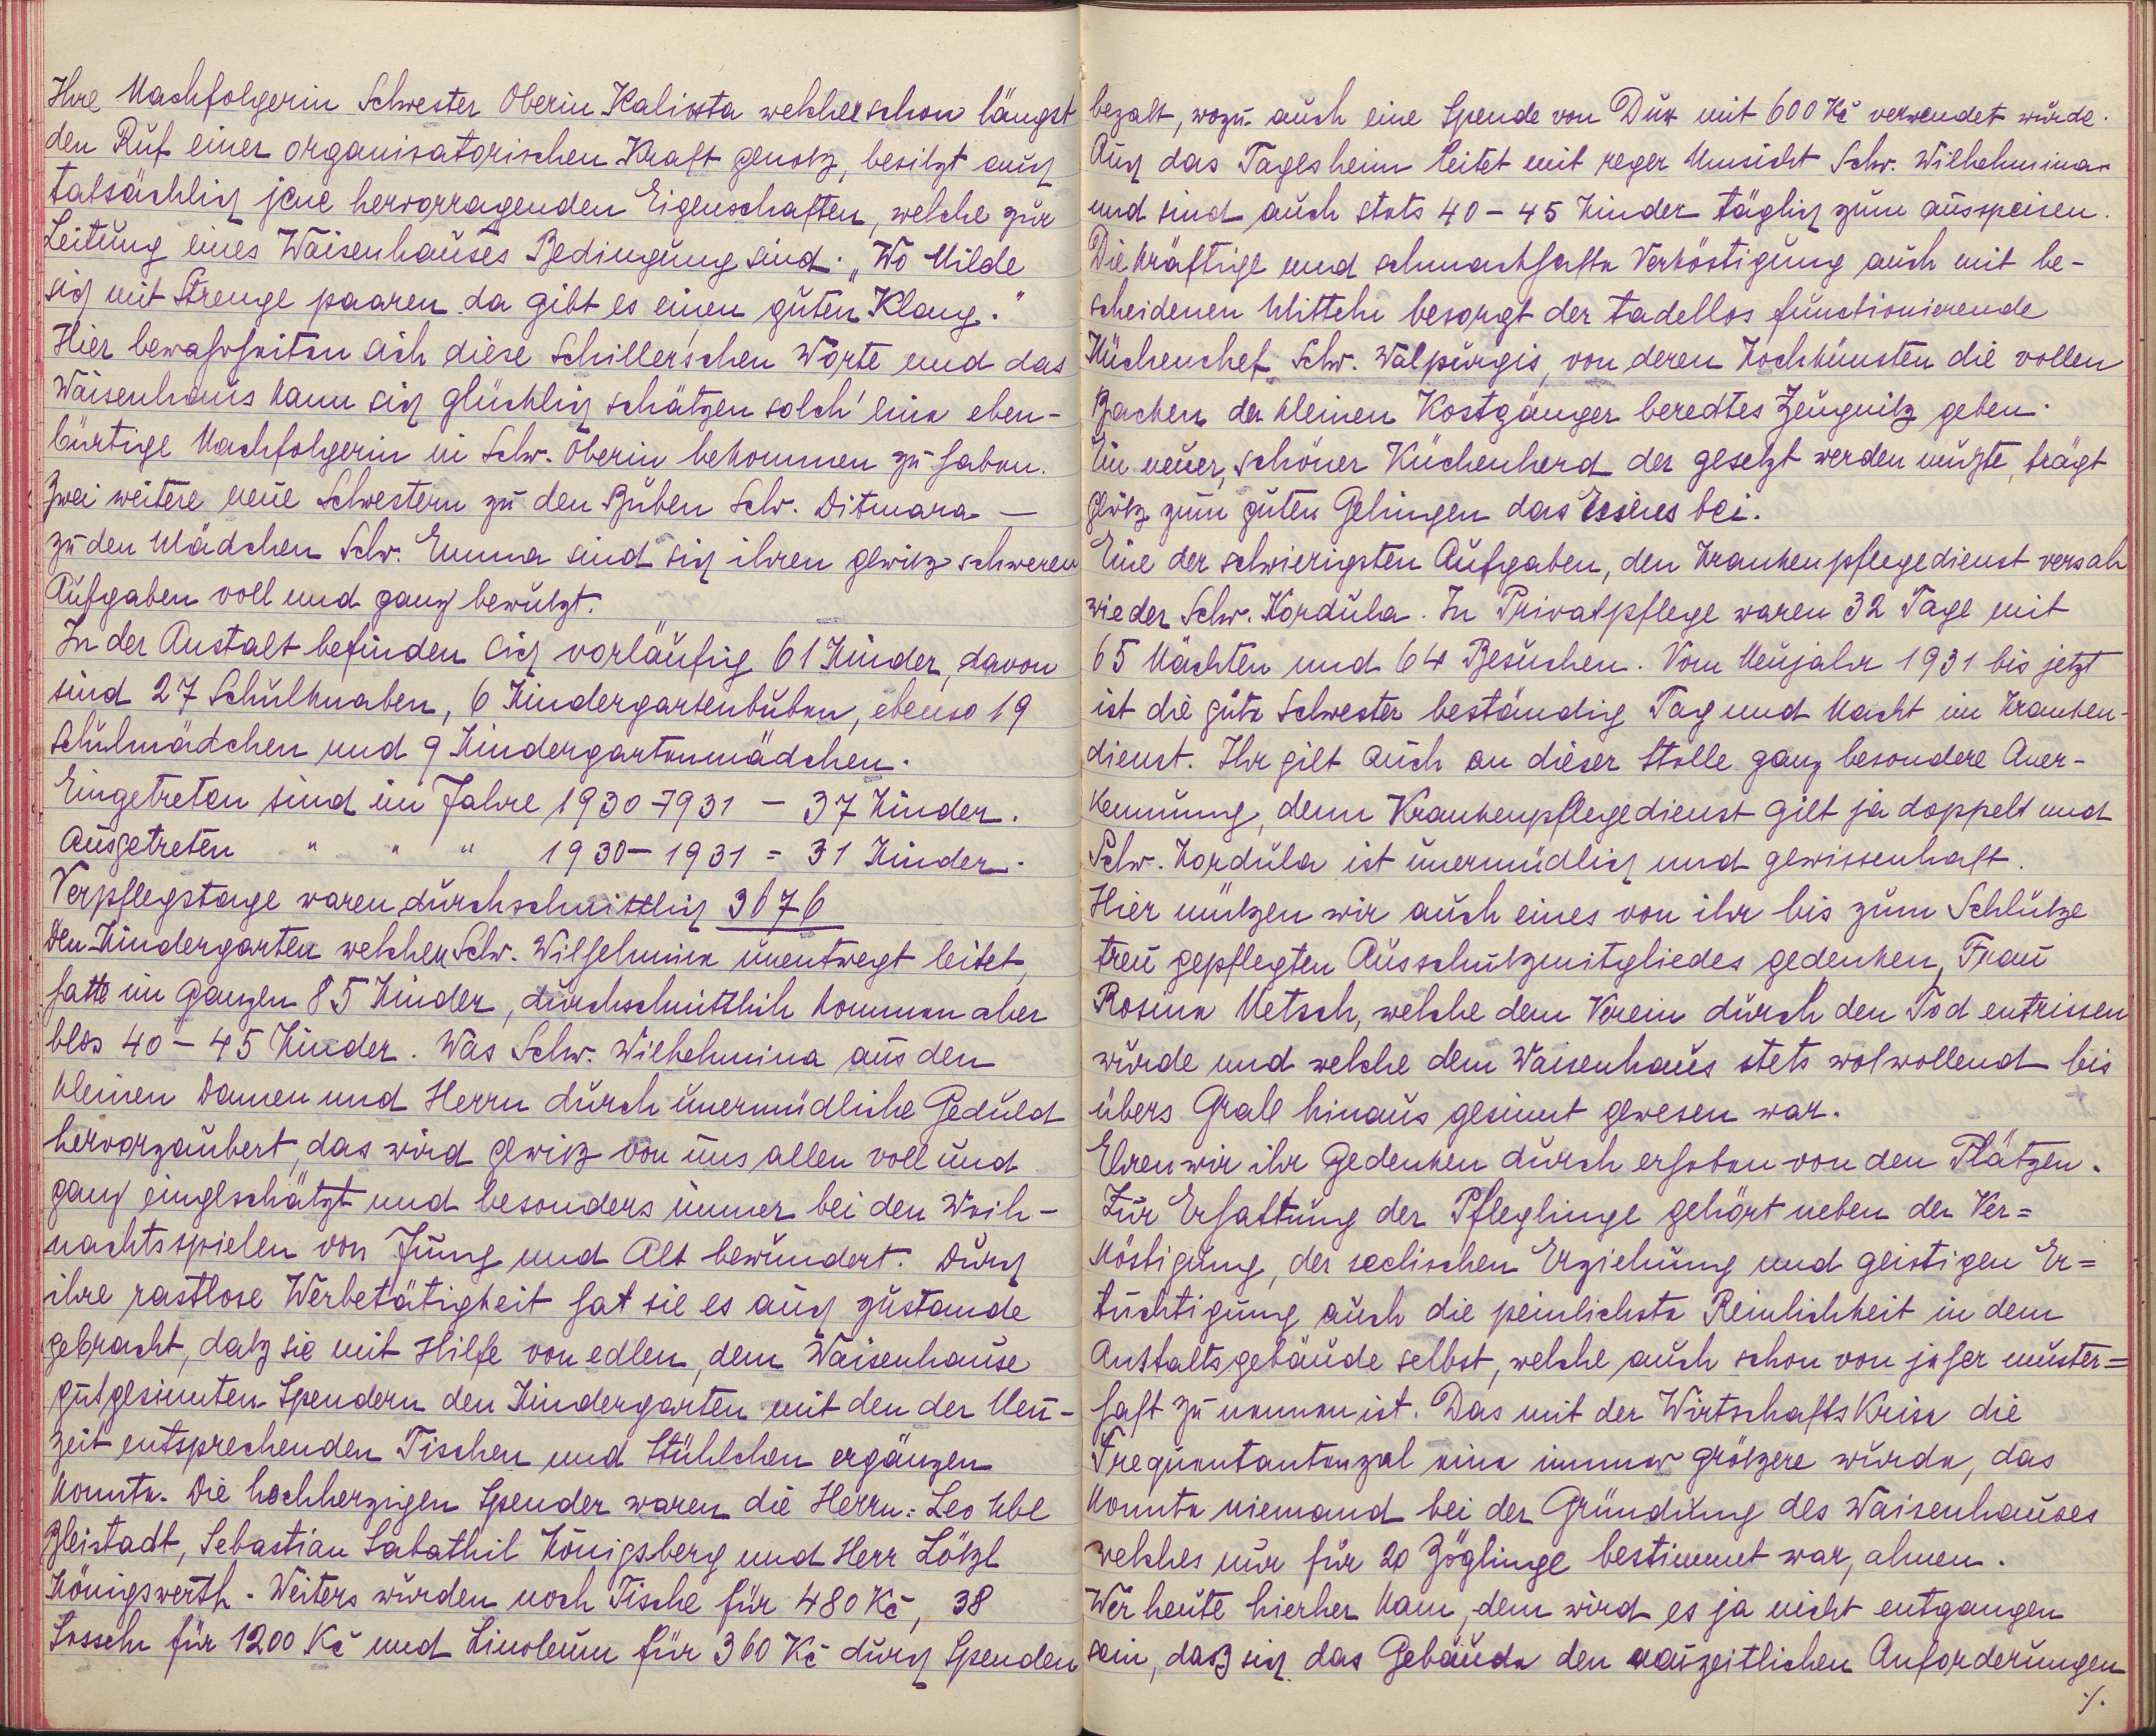 Ihre Nachfolgerin Schwester Oberin Kalixta welcher schon längst
den Ruf einer organisatorischen Kraft genoß, besitzt auch
tatsächlich jene hervorragenden Eigenschaften, welche zur
Leitung eines Waisenhauses Bedingung sind. „Wo Milde
sich mit Strenge paaren da gibt es einen guten Klang."
Hier bewahrheiten sich diese Schiller'schen Worte und das
Waisenhaus kann sich glücklich schätzen solch' eine eben-
bürtige Nachfolgerin in Schw. Oberin bekommen zu haben.
Zwei weitere neue Schwestern zu den Buben Schw. Ditmara –
zu den Mädchen Schw. Emma sind sich ihren gewiß schweren
Aufgaben voll und ganz bewußt.
In der Anstalt befinden sich vorläufig 61 Kinder, davon
sind 27 Schulknaben, 6 Kindergartenbuben, ebenso 19
Schulmädchen und 9 Kindergartenmädchen.
Eingetreten sind im Jahre 1930-1931 – 37 Kinder.
Ausgetreten " " " 1930-1931 = 31 Kinder.
Verpflegstage waren durchschnittlich 3676
Den Kindergarten welchen Schw. Wilhelmina unentwegt leitet,
hatte im Ganzen 85 Kinder, durchschnittlich kommen aber
blos 40-45 Kinder. Was Schw. Wilhelmina aus den
kleinen Damen und Herrn durch unermüdliche Geduld
hervorzaubert, das wird gewiß von uns allen voll und
ganz eingeschätzt und besonders immer bei den Weih-
nachtsspielen von Jung und Alt bewundert. Durch
ihre rastlose Werbetätigkeit hat sie es auch zustande
gebracht, daß sie mit Hilfe von edlen, dem Waisenhause
gutgesinnten Spendern den Kindergarten mit den der Neu-
zeit entsprechenden Tischen und Stühlchen ergänzen
konnte. Die hochherzigen Spender waren die Herrn: Leo Ubl
Bleistadt, Sebastian Sabathil Königsberg und Herr Lößl
Königswerth. Weiters wurden noch Tische für 480 Kč, 38
Sesseln für 1200 Kč und Linoleum für 360 Kč durch Spenden
bezalt, wozu auch eine Spende von Dux mit 600 Kč verwendet wurde.
Auch das Tagesheim leitet mit reger Umsicht Schw. Wilhelmina
und sind auch stets 40-45 Kinder täglich zum ausspeisen.
Die kräftige und schmackhafte Verköstigung auch mit be-
scheidenen Mitteln besorgt der tadellos functionierende
Küchenchef Schw. Walpurgis, von deren Kochkünsten die vollen
Backen der kleinen Kostgänger beredtes Zeugniß geben.
Ein neuer, schöner Küchenherd der gesetzt werden mußte, trägt
gewiß zum guten Gelingen das Essens bei.
Eine der schwierigsten Aufgaben, den Krankenpflegedienst versah
wieder Schw. Kordula. In Privatpflege waren 32 Tage mit
65 Nächten und 64 Besuchen. Vom Neujahr 1931 bis jetzt
ist die gute Schwester beständig Tag und Nacht im Kranken-
dienst. Ihr gilt auch an dieser Stelle ganz besondere Aner-
kennung, denn Krankenpflegedienst gilt ja doppelt und
Schw. Kordula ist unermüdlich und gewissenhaft.
Hier müßen wir auch eines von ihr bis zum Schluße
treu gepflegten Ausschußmitgliedes gedenken, Frau
Rosina Metsch, welche dem Verein durch den Tod entrissen
wurde und welche dem Waisenhaus stets wolwollend bis
übers Grab hinaus gesinnt gewesen war.
Ehren wir ihr Gedenken durch erheben von den Plätzen.
Zur Erhaltung der Pfleglinge gehört neben der Ver=
köstigung, der seelischen Erziehung und geistigen Er=
tüchtigung auch die peinlichste Reinlichkeit in dem
Anstaltsgebäude selbst, welche auch schon von jeher muster=
haft zu nennen ist. Das mit der Wirtschaftskrise die
Frequentantenzal eine immer größere wurde, das
konnte niemand bei der Gründung des Waisenhauses
welches nur für 20 Zöglinge bestimmt war, ahnen.
Wer heute hierher kam, dem wird es ja nicht entgangen
sein, daß sich das Gebäude den neuzeitlichen Anforderungen
./.